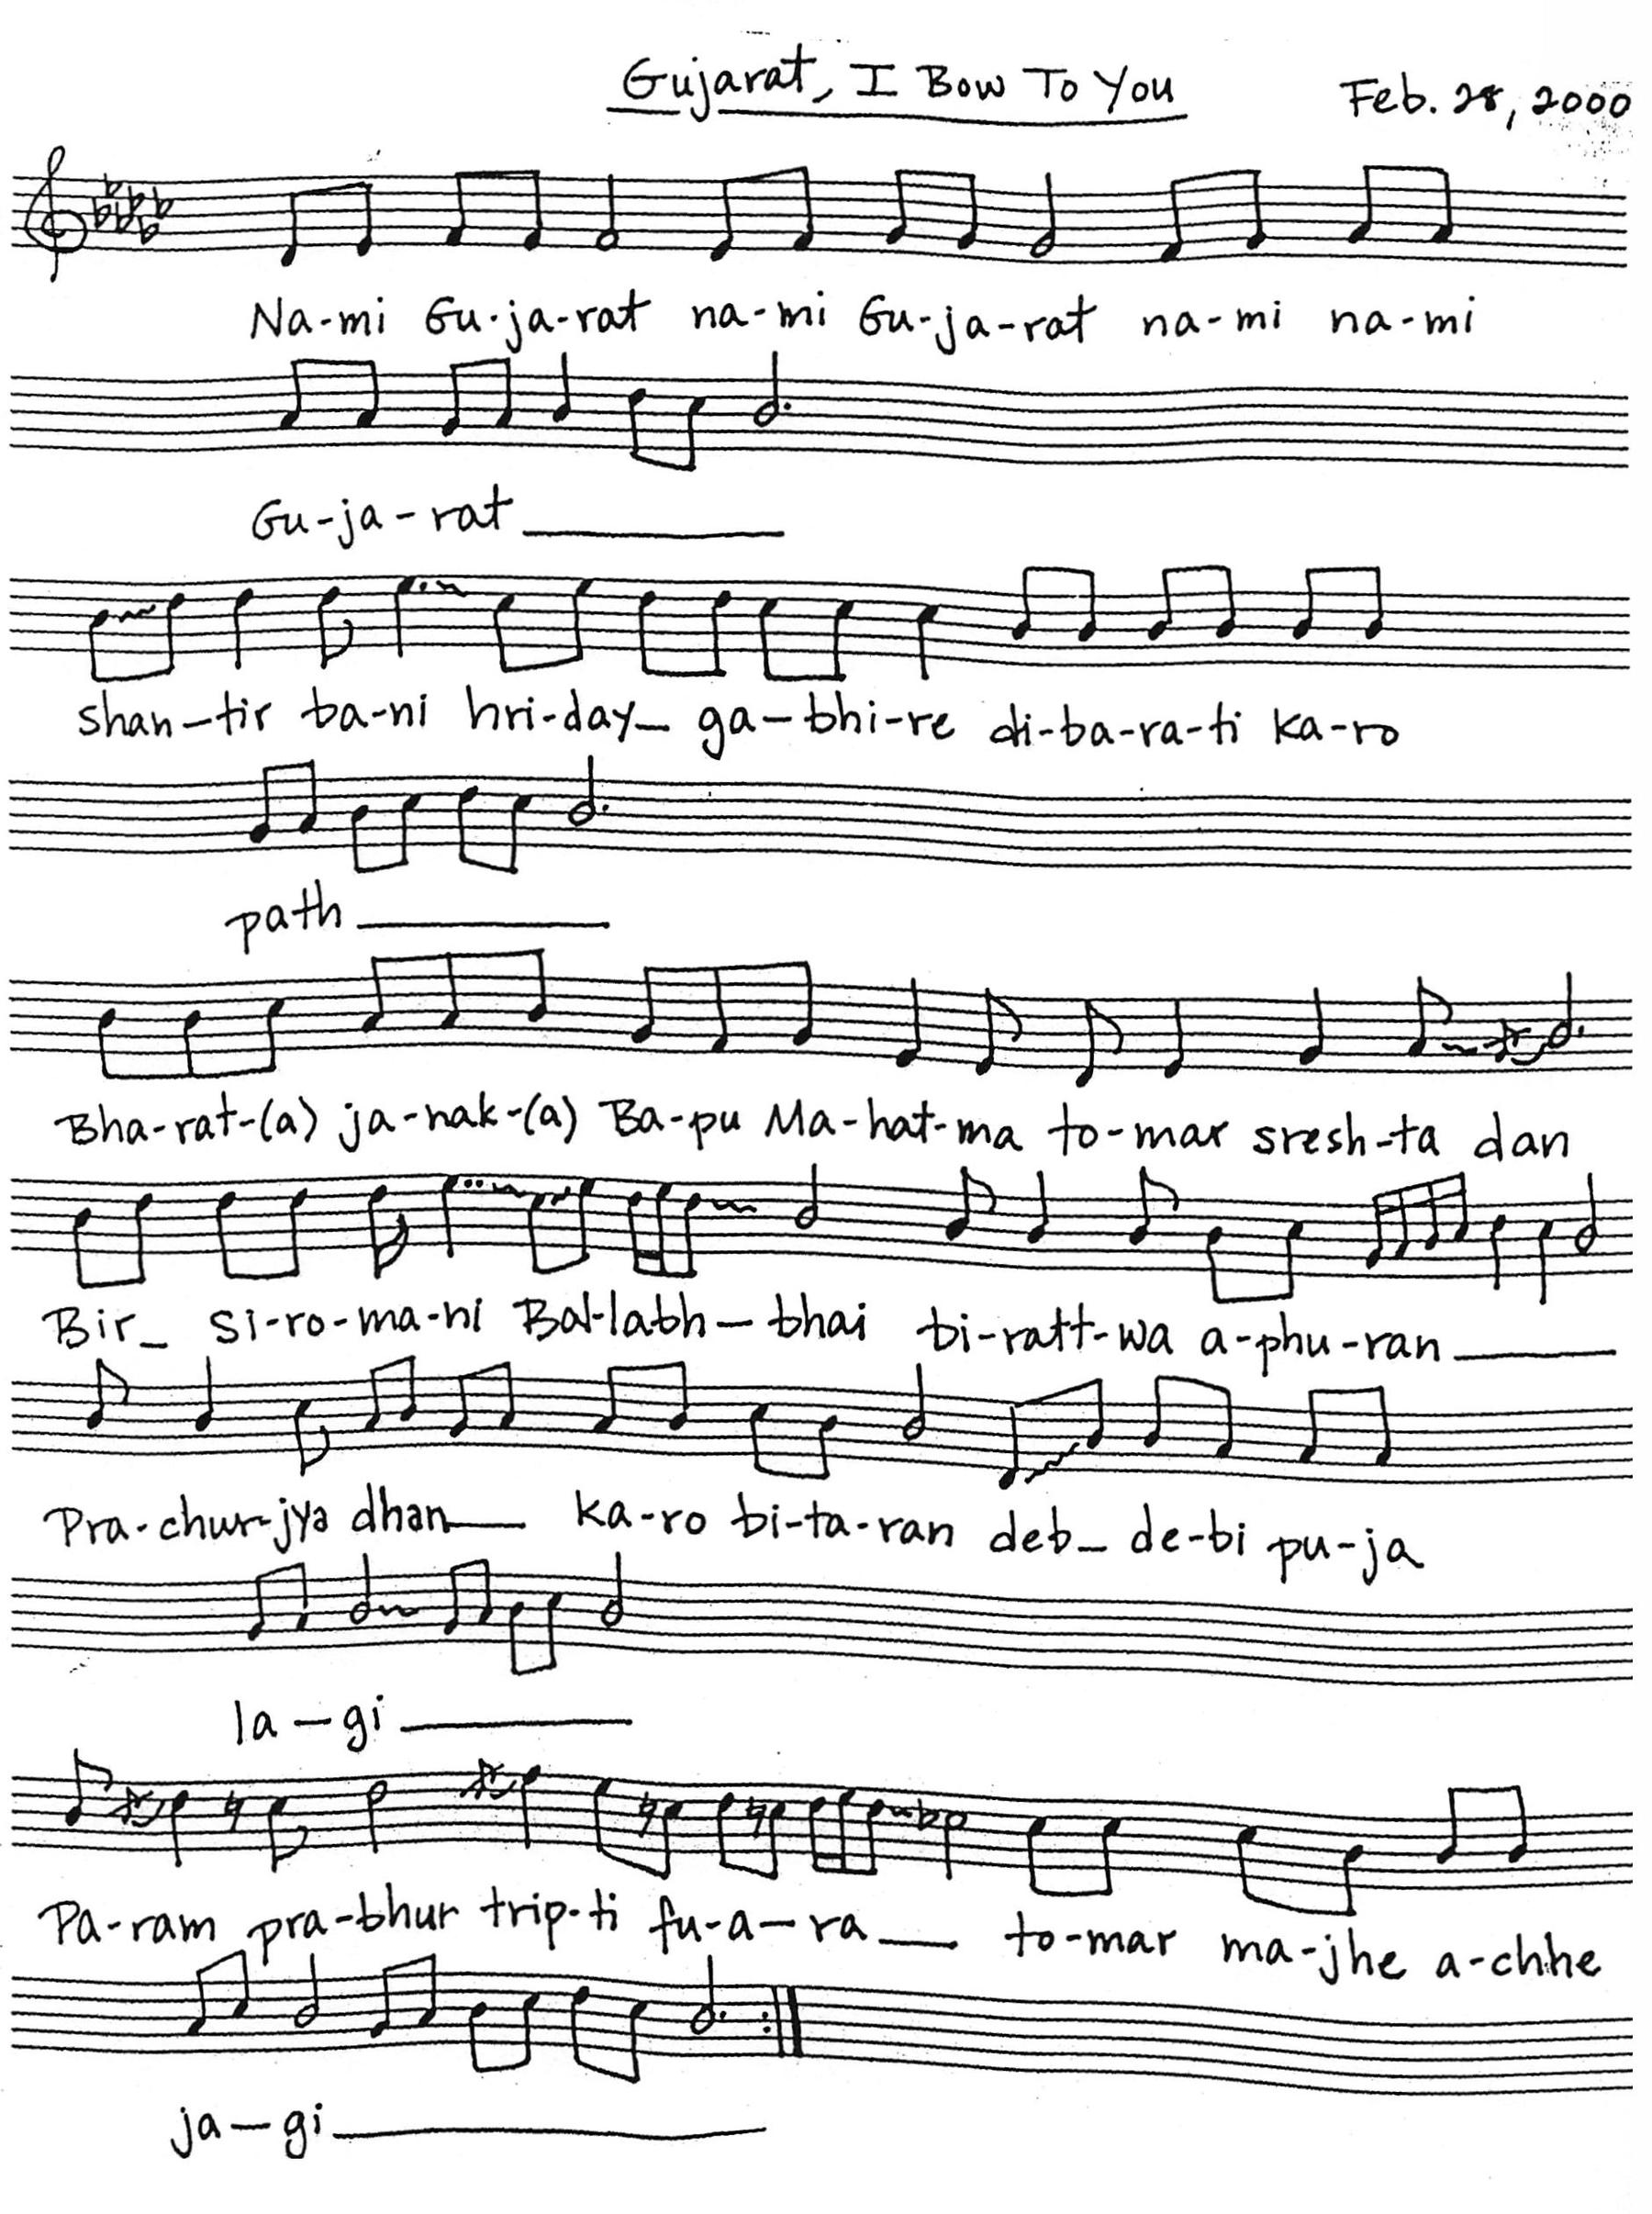 Gujarat, I Bow To You
Feb. 28, 2000
Na-mi Gu-ja-rat na-mi Gu-ja-rat na-mi na-mi
Gu-ja-rat
shan-tir ba-ni hri-day_ ga-bhi-re di-ba-ra-ti ka-ro
path
Bha-rat-(a) ja-nak-(a) Ba-pu Ma-hat-ma to-mar sresh-ta dan
Bir_ si-ro-ma-ni Bal-labh-bhai bi-ratt-wa a-phu-ran
Pra-chur-jya dhan ka-ro bi-ta-ran deb_ de-bi pu-ja
la-gi
Pa-ram pra-bhur trip-ti fu-a-ra to-mar ma-jhe a-chhe
ja-gi